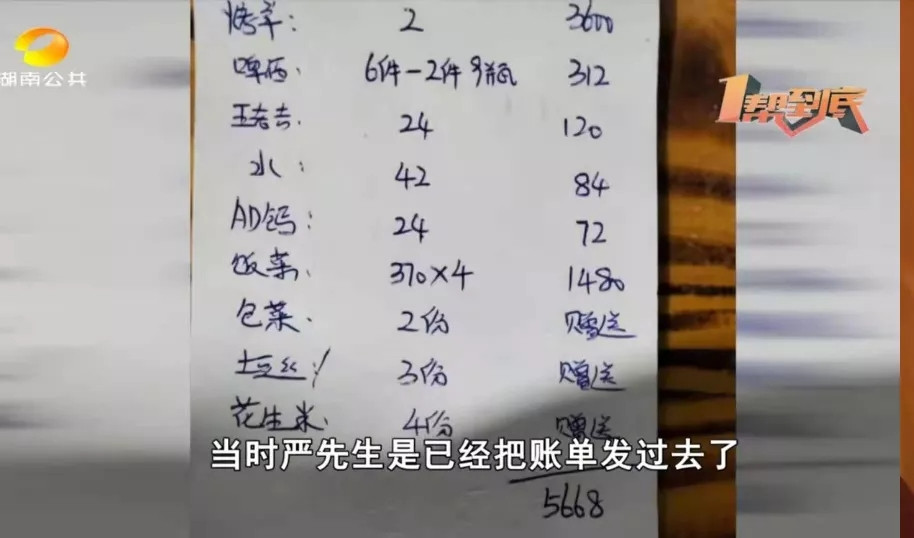 湖南公共
1帮到底
烤羊: 2 3600
啤酒: 6件-2件9瓶 312
王老吉: 24 120
水: 42 84
AD钙: 24 72
饭菜: 370×4 1480
包菜. 2份 赠送
土豆丝: 3份 赠送
花生米. 4份 赠送
当时严先生是已经把账单发过去了
5668